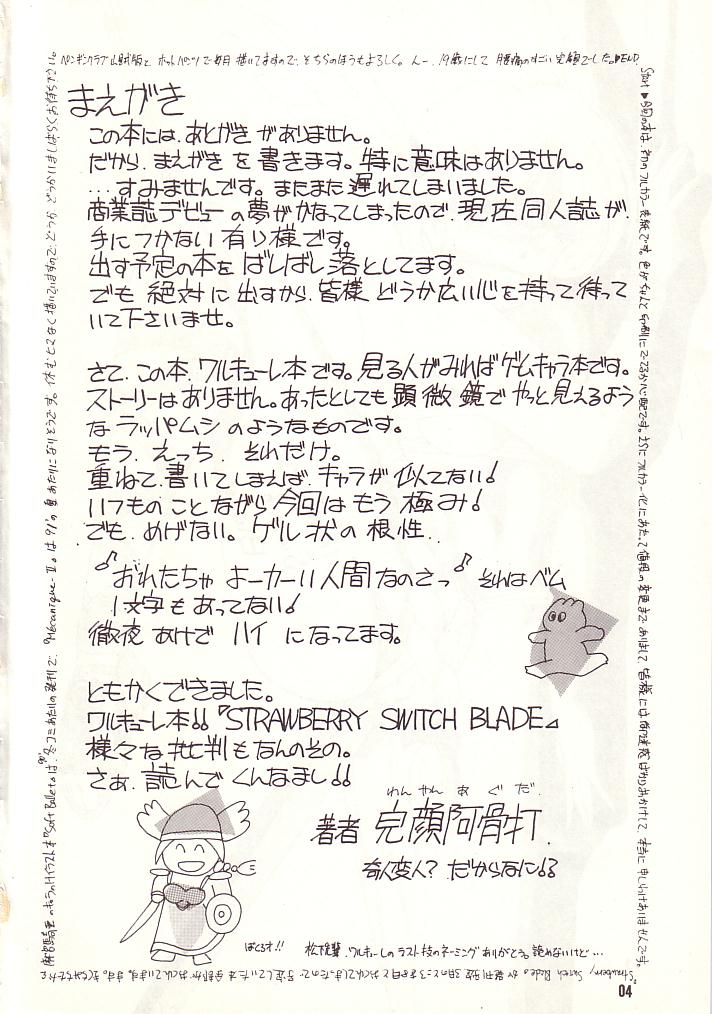 まえがき
この本には、あとがきがありません。
だから、まえがきを書きます。特に意味はありません。
…すみませんです。またまた遅れてしまいました。
商業誌デビューの夢がかなってしまったので、現在同人誌が、
手につかない有り様です。
出す予定の本をばしばし落としてます。
でも絶対に出すから、皆様どうか広い心を持って待って
いて下さいませ。
さて、この本、ワルキューレ本です。見る人がみればゲームキャラ本です。
ストーリーはありません。あったとしても顕微鏡でやっと見えるよう
なラッパムシのようなものです。
もう、えっち、それだけ。
重ねて、書いてしまえば、キャラが似てない!
いつものことながら今回はもう極み!
でも、めげない。ゲル状の根性..
♪おれたちゃよーカーいい人間なのさっ♪それはベム
1文字もあってない!
徹夜あけでハイになってます。
ともかくできました。
ワルキューレ本!!『STRAWBERRY SWITCH BLADE』
様々な批判もなんのその。
さぁ、読んでくんなまし!!
わんやんあぐだ
著者 完顔阿骨打.
奇人変人?だからなに!?
ばくろオ!!
松下先輩、ワルキューレのラスト技のネーミングありがとう。読めないけど…
ペンギンクラブ山賊版とホットパンツで毎月描いてますので、そちらのほうもよろしく。んー、19歳にして腰痛のすごい完顔でした。END
Start 今回の本は、初のフルカラー表紙です。色がちゃんと印刷にでてるか心配です。さらにフルカラー化にあたって値段の変更まであリまして、皆様には御迷惑ばかりおかけして、本当に申しわけありませんです。
04